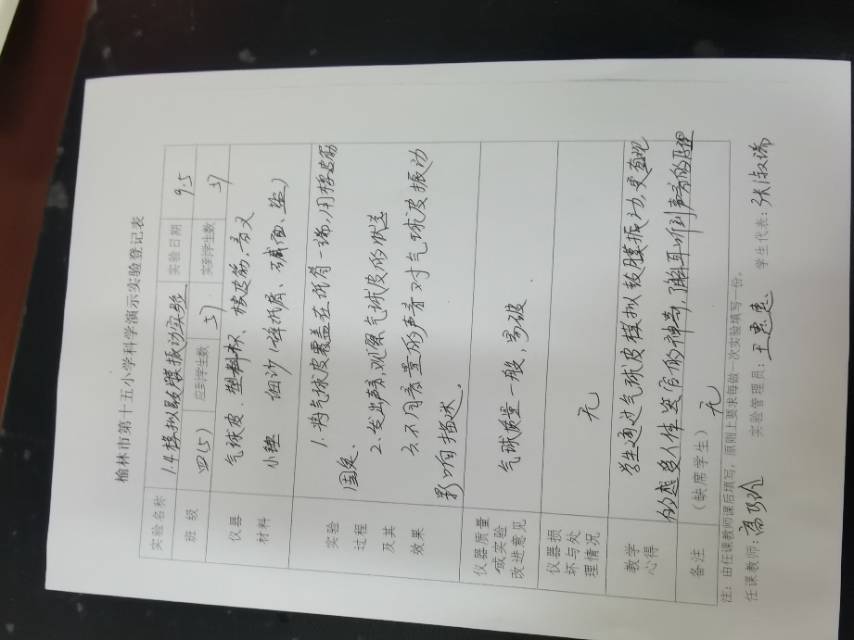 榆林市第十五小学科学演示实验登记表
实验名称 1.4模拟鼓膜振动实验 实验日期 9.5
班 级 四(5) 应到学生数 57 实到学生数 57
仪器 气球皮、塑料杯、橡皮筋、音叉
材料 小锤 细沙(碎纸屑、碱面、盐)
实验 1.将气球皮覆盖在杯有一端,用橡皮筋
过程 固定。
及其 2.发出声音,观察气球皮的状态
效果 3.不同音量的声音对气球皮振动
影响描述。
仪器质量
或实验 气球质量一般,易破.
改进意见
仪器损
坏与处 无
理情况
教学 学生通过气球皮模拟鼓膜振动,更直观
心得 的感受人体器官的神奇,了解耳听到声音的原理
备注 (缺席学生) 无
注:由任课教师课后填写,原则上要求每做一次实验填写一份。
任课教师:高 实验管理员:王惠惠 学生代表:张淑瑞